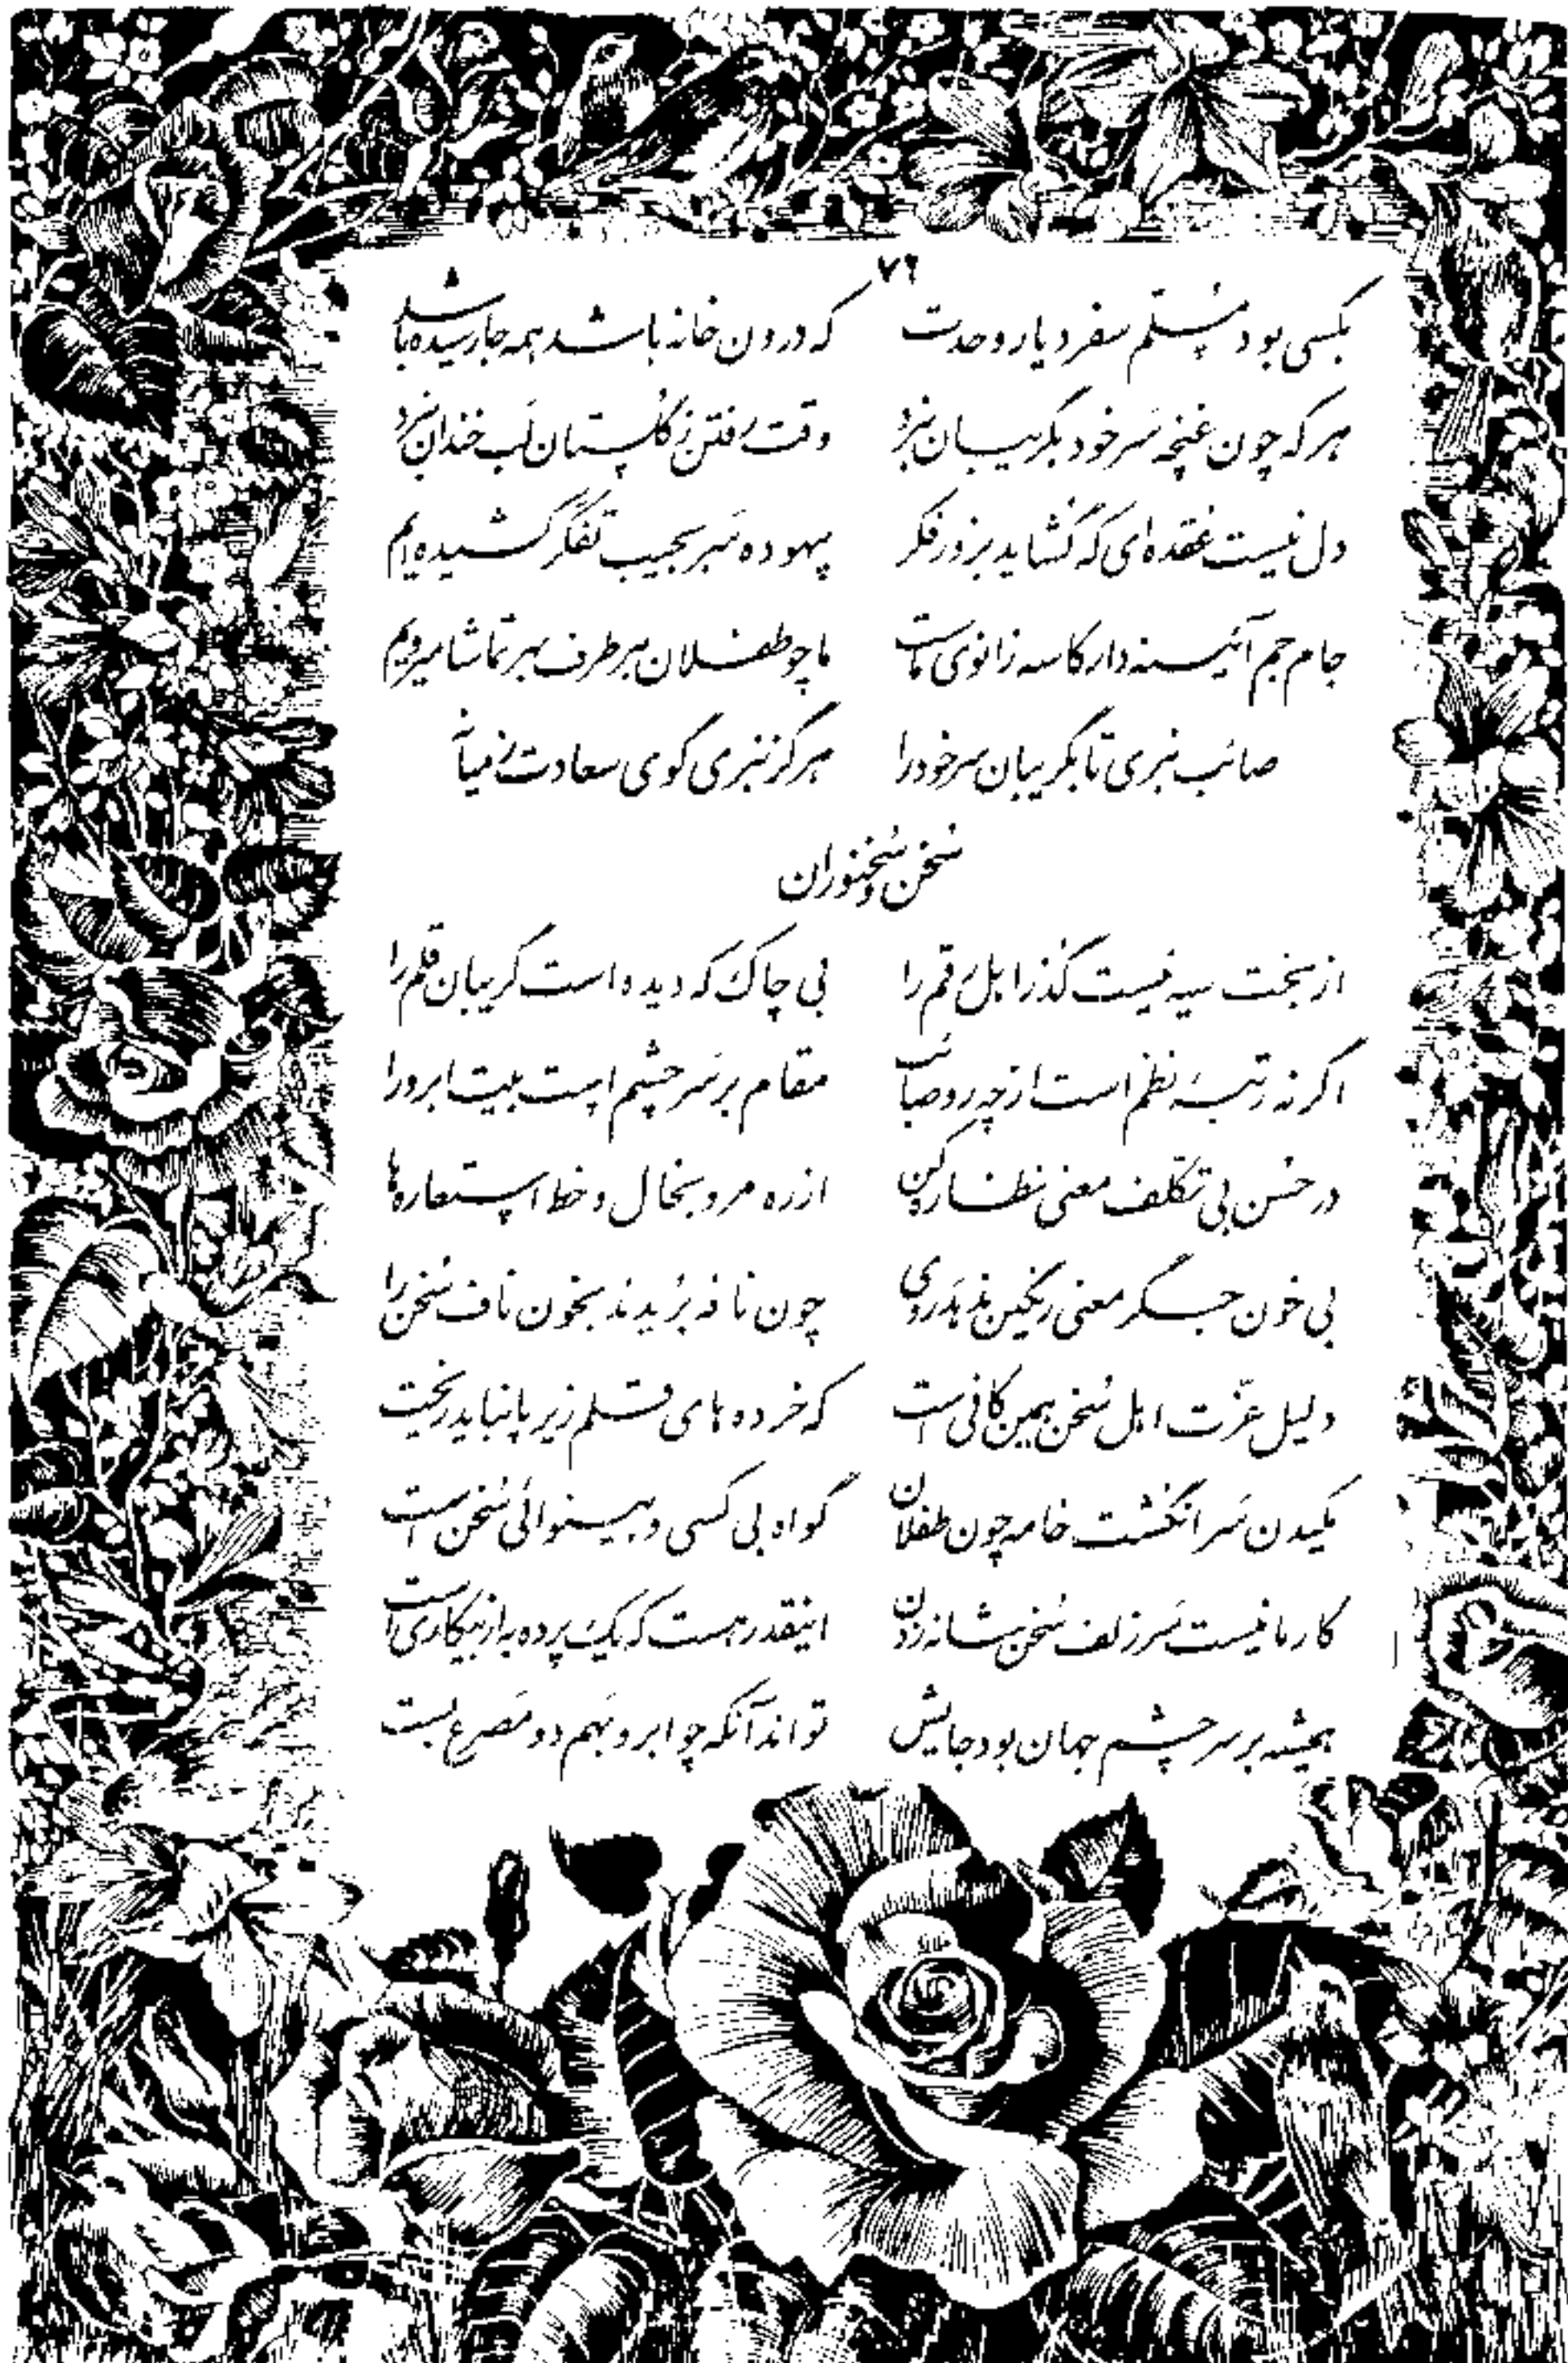 ۷۶
بکسی بود مسلم سفر دیار وحدت که درون خانه باشد همه جا رسیده باشد
هرکه چون غنچه سر خود بگریبان نبرد وقت رفتن ز گلستان لب خندان نبرد
دل نیست عقده‌ای که گشاید بزور فکر بیهوده سر بجیب تفکر کشیده‌ایم
جام جم آئینه‌دار کاسه زانوی ماست ما چو طفلان هر طرف بهر تماشا میرویم
صائب نبری تا بگریبان سر خود را هرگز نبری گوی سعادت ز میانه
سخن و سخنوران
از بخت سیه نیست گذر اهل رقم را بی چاک که دیده است گریبان قلم را
اگر نه رتبهٔ نظم است از چه رو صائب مقام بر سر چشم است بیت ابرو را
در حسن بی تکلف معنی نظاره کن از ره مرو بخال و خط استعاره‌ها
بی خون جگر معنی رنگین ندهد روی چون نافه بریدند بخون ناف سخن را
دلیل عزت اهل سخن همین کافی است که خرده‌های قلم زیر پا نباید ریخت
مکیدن سر انگشت خامه چون طفلان گواه بی کسی و بینوائی سخن است
کار ما نیست سر زلف سخن شانه زدن اینقدر هست که یک پرده به از بیکاری است
همیشه بر سر چشم جهان بود جایش تواند آنکه چو ابرو بهم دو مصرع بست